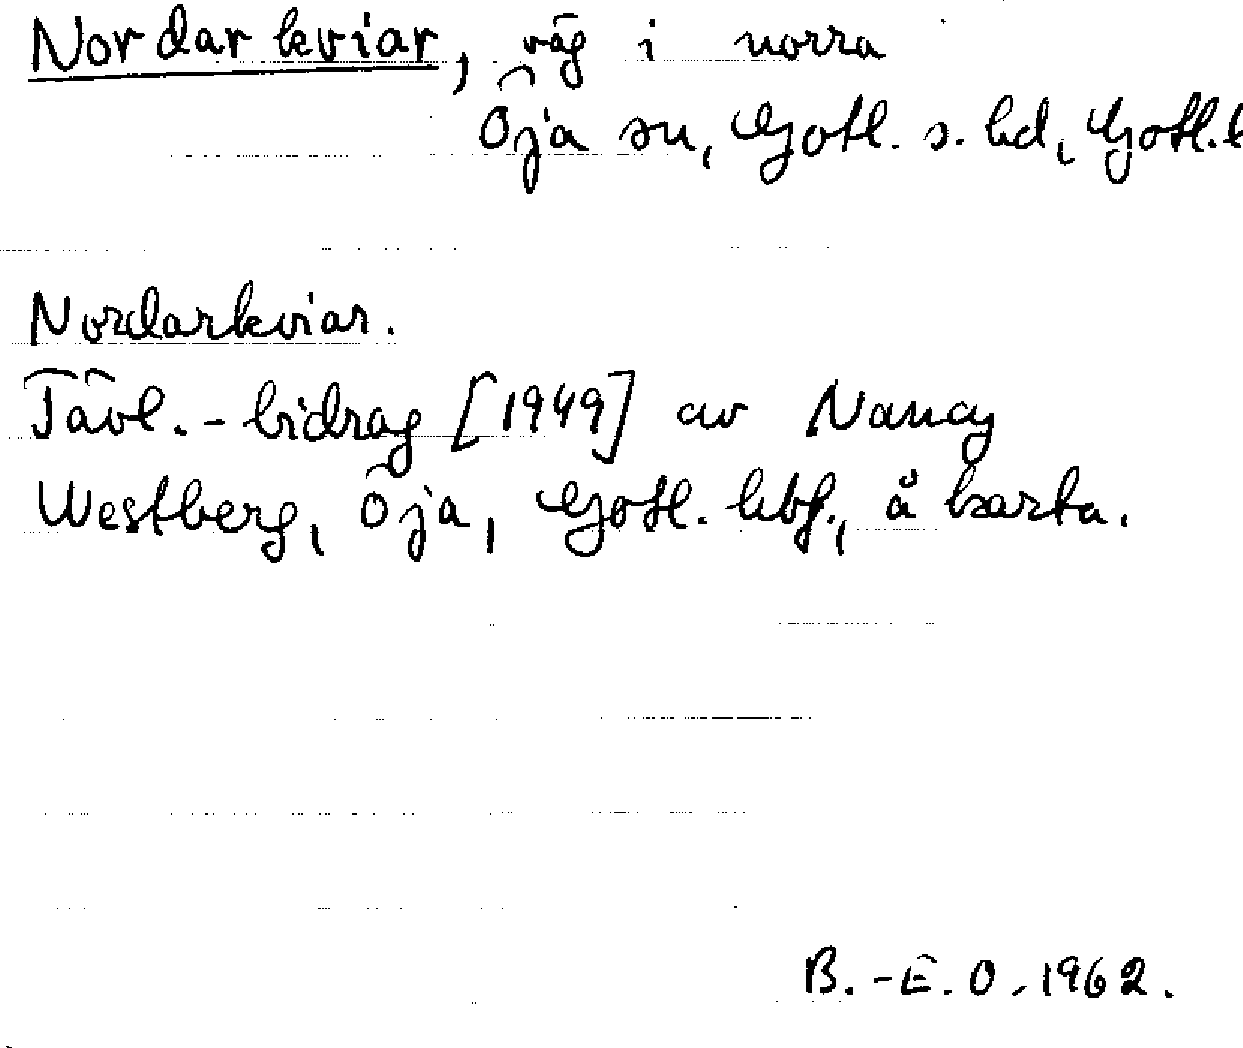 Nordarkviar, väg i norra
Öja sn, Gotl. s. hd, Gotl. l
Nordarkviar.
Tävl.-bidrag [1949] av Nancy
Westberg, Öja, Gotl. kbf., å karta.
B.-E. O. 1962.